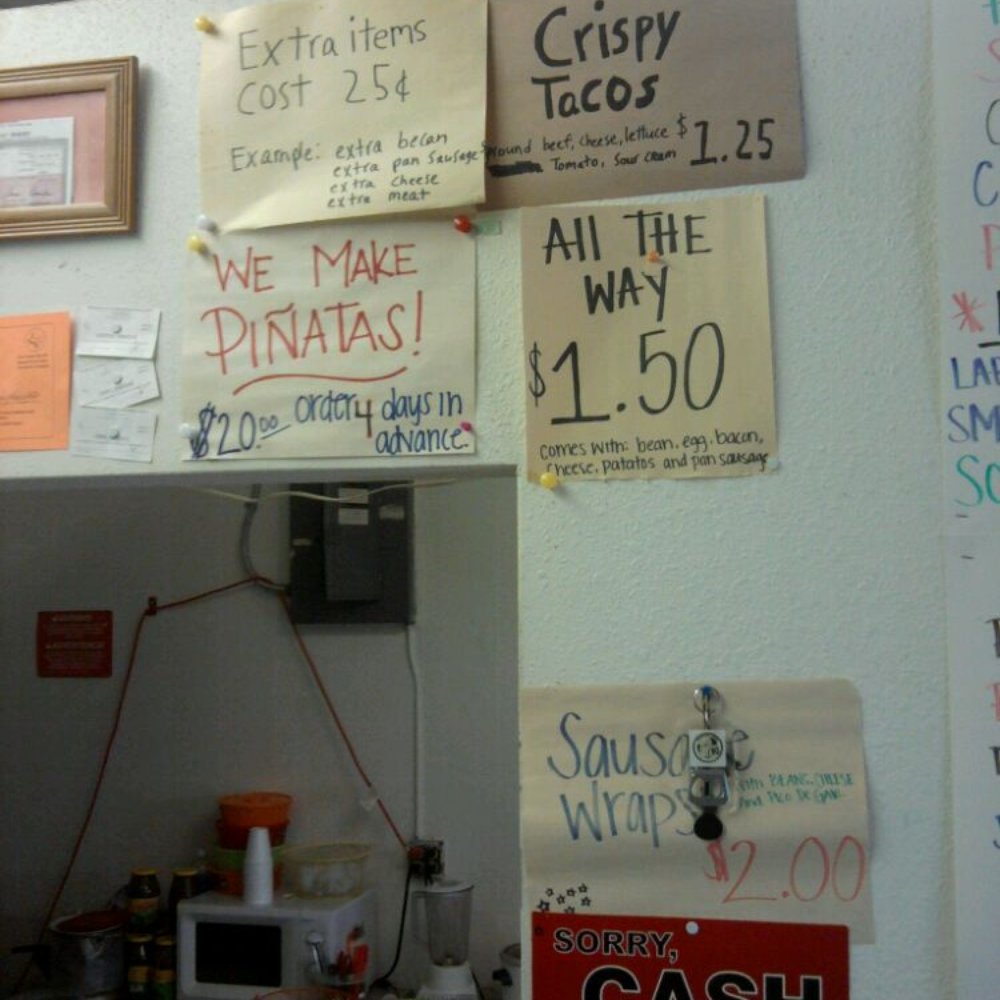 Extra items
cost 25¢
Example: extra becan
extra pan sausage
extra cheese
extra meat
Crispy
Tacos
round beef, cheese, lettuce $1.25
Tomato, sour cream
WE MAKE
PIÑATAS!
$20.00 order 4 days in
advance.
All THE
WAY
$1.50
comes with: bean, egg, bacon,
cheese, patatos and pan sausage
Sausage
Wraps
with BEANS, CHEESE
and Pico De Gallo
$2.00
SORRY,
CASH
*
LAB
SM
SO